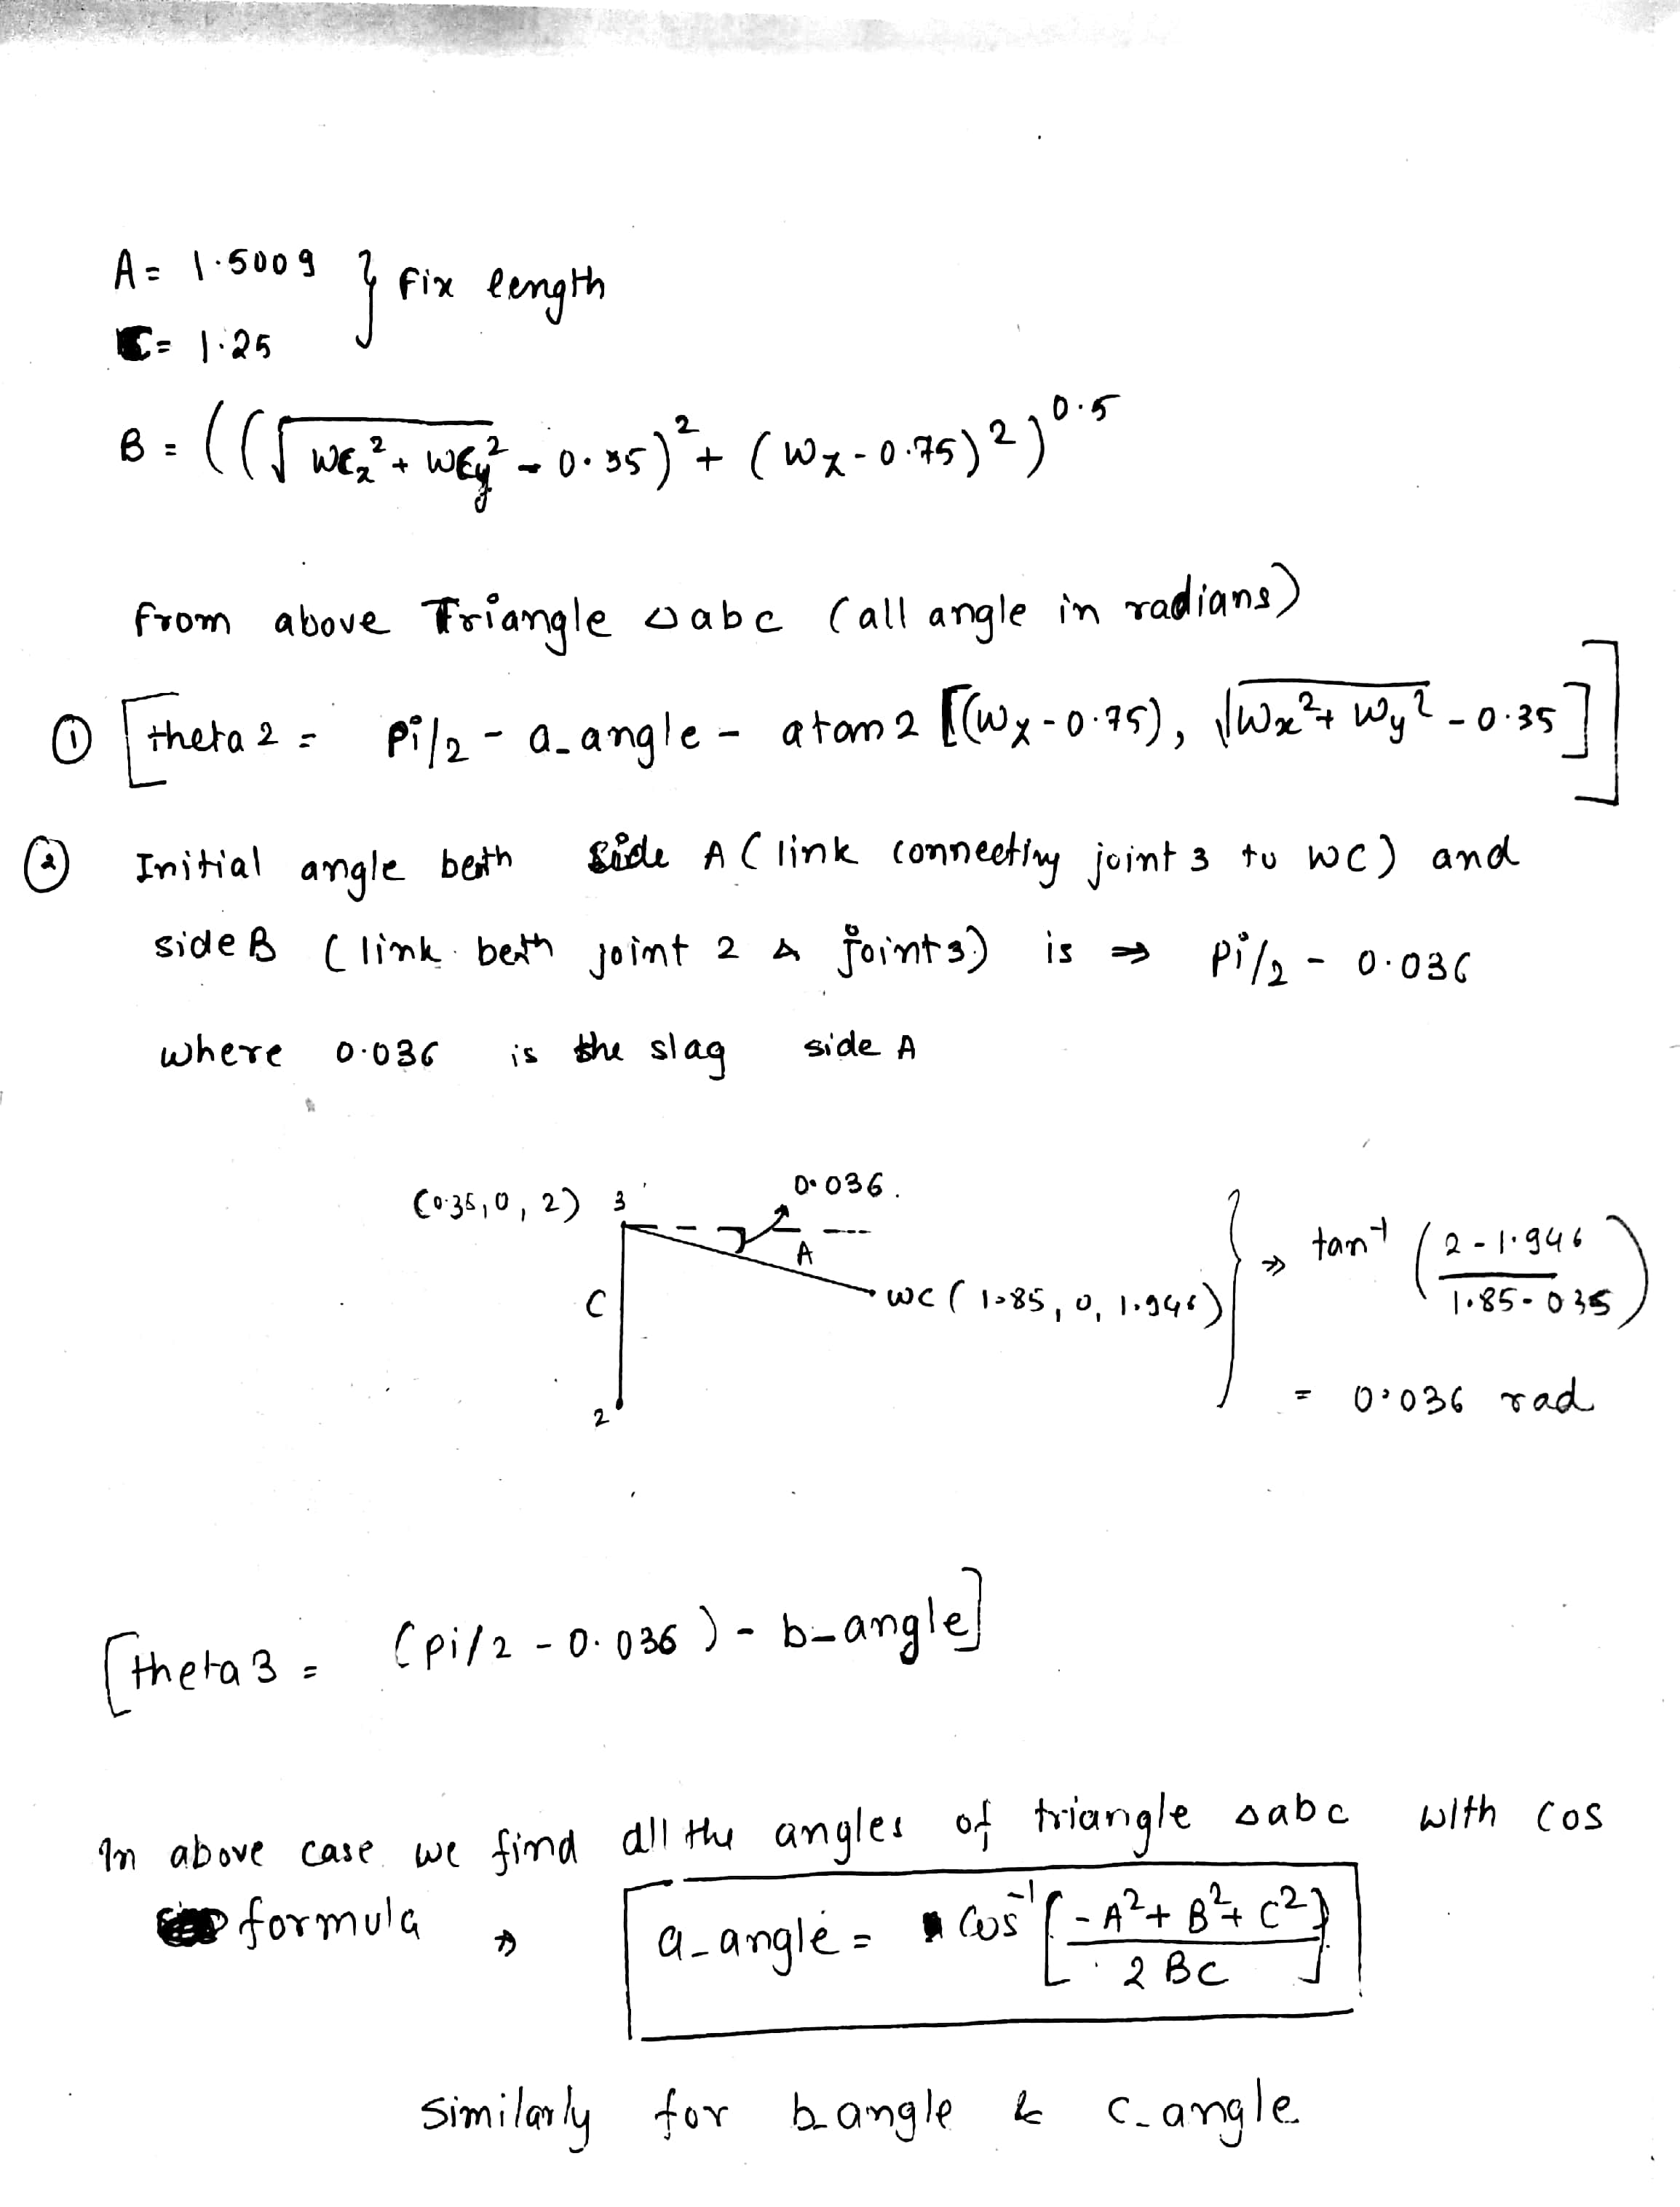 A = 1.5009 } Fix length
C = 1.25
B = ((√WC_x² + WC_y² - 0.35)² + (W_z - 0.75)²)^0.5
From above Triangle △abc (all angle in radians)
① [theta 2 = pi/2 - a_angle - atan2 [(W_z - 0.75), √W_x² + W_y² - 0.35]]
② Initial angle betn side A (link connecting joint 3 to WC) and
side B (link betn joint 2 & joint 3) is ⇒ pi/2 - 0.036
where 0.036 is the slag side A
(0.35, 0, 2) 3 0.036.
A
C
WC (1.85, 0, 1.946) } ⇒ tan⁻¹ ((2 - 1.946)/(1.85 - 0.35))
2
= 0.036 rad
[theta 3 = (pi/2 - 0.036) - b_angle]
In above case we find all the angles of triangle △abc with cos
formula ⇒ a_angle = Cos⁻¹ [(-A² + B² + C²)/(2BC)]
similarly for b_angle & c_angle